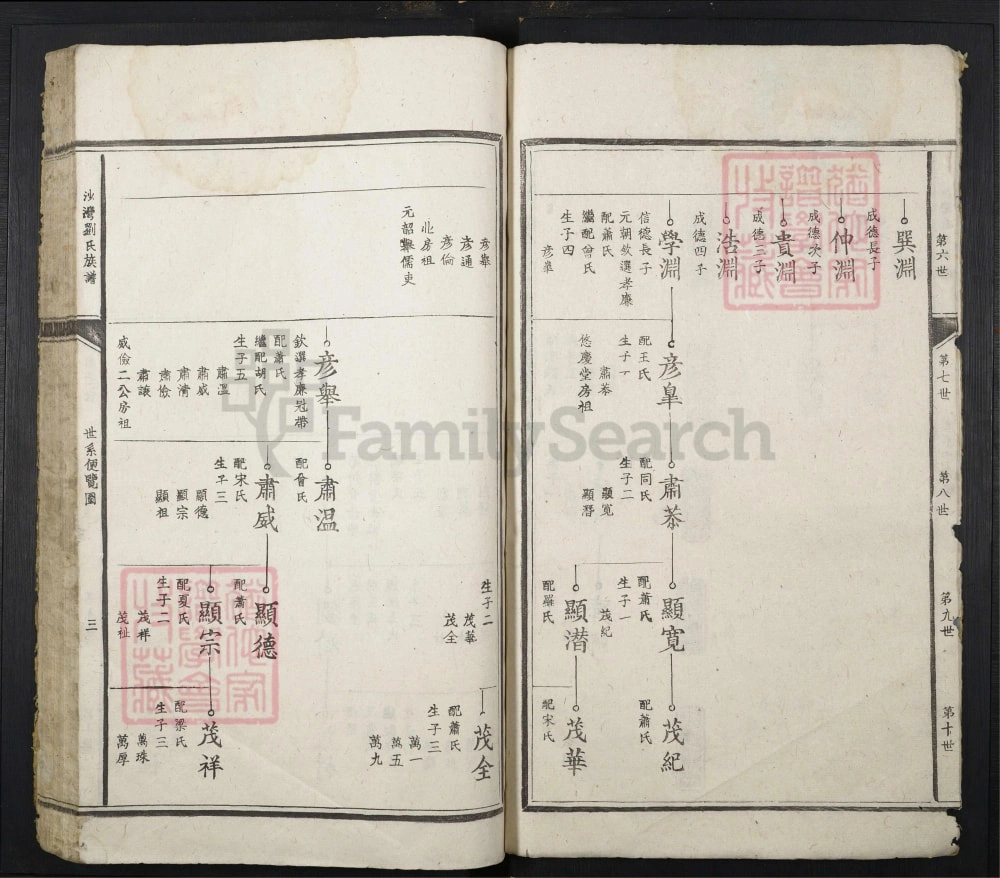 第六世
第七世
第八世
第九世
第十世
巽淵
成德長子
仲淵
成德次子
貴淵
成德三子
浩淵
成德四子
學淵
信德長子
元朝欽選孝廉
配蕭氏
繼配曾氏
生子四
彦臯
彦舉
彦通
彦倫
北房祖
元韶舉儒吏
彦臯
配王氏
生子一
肅㳟
悠慶堂房祖
彦舉
欽選孝廉冠帶
配蕭氏
繼配胡氏
生子五
肅溫
肅威
肅清
肅儉
肅讓
威儉二公房祖
肅㳟
配同氏
生子二
顯寬
顯潛
肅溫
配曾氏
肅威
配宋氏
生子三
顯德
顯宗
顯祖
顯寬
配蕭氏
生子一
茂紀
顯潛
配羅氏
生子二
茂華
茂全
顯德
配蕭氏
顯宗
配夏氏
生子二
茂祥
茂祉
茂紀
配蕭氏
茂華
配宋氏
茂全
配蕭氏
生子三
萬一
萬五
萬九
茂祥
配梁氏
生子三
萬珠
萬厚
沙灣劉氏族譜
世系便覽圖
三
FamilySearch